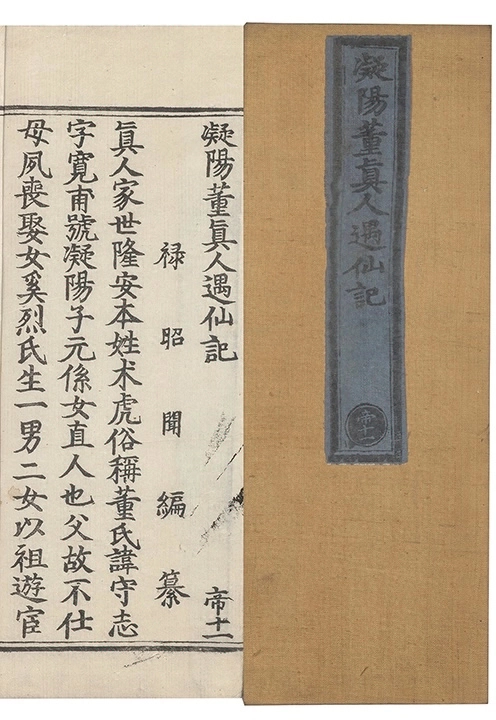 凝陽董真人遇仙記
帝十一
凝陽董真人遇仙記
帝十一
祿昭聞編纂
真人家世隆安本姓术虎俗稱董氏諱守志
字寬甫號凝陽子元係女直人也父故不仕
母夙喪娶女奚烈氏生一男二女以祖遊宦